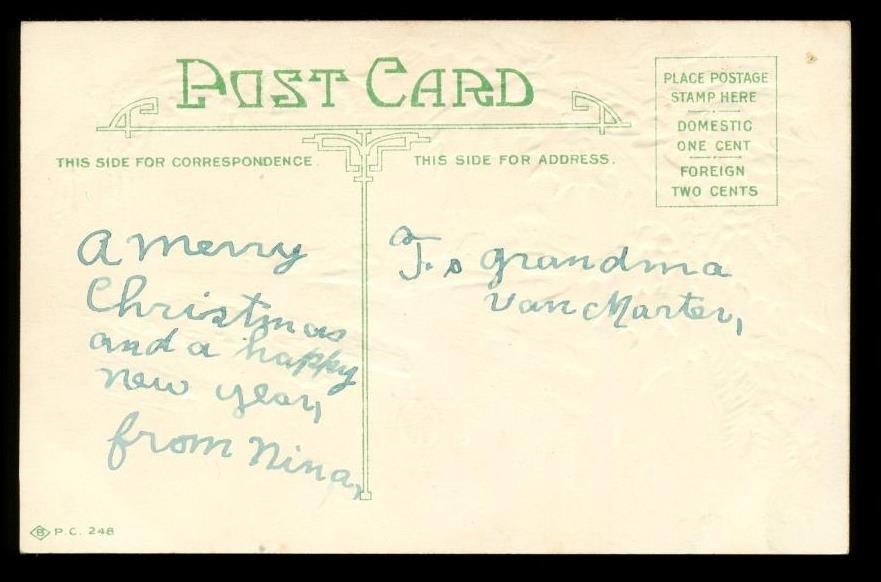 POST CARD
THIS SIDE FOR CORRESPONDENCE.
THIS SIDE FOR ADDRESS.
PLACE POSTAGE
STAMP HERE
DOMESTIC
ONE CENT
FOREIGN
TWO CENTS
A merry
Christmas
and a happy
new year,
from Nina,
To grandma
Van Marter,
B P.C. 248